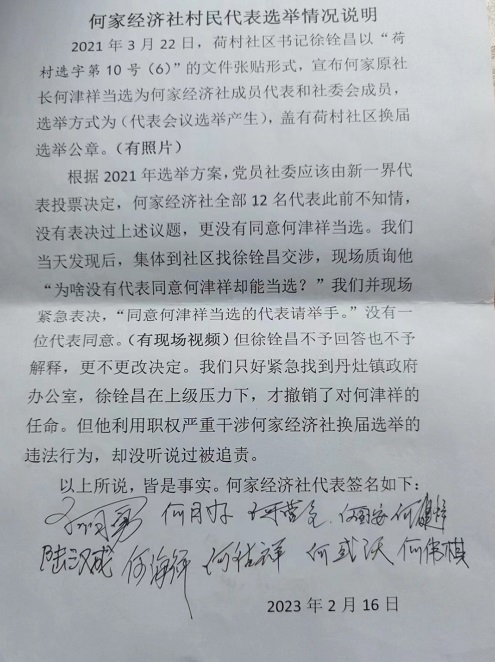 何家经济社村民代表选举情况说明
2021年3月22日，荷村社区书记徐铨昌以“荷
村选字第10号（6）”的文件张贴形式，宣布何家原社
长何津祥当选为何家经济社成员代表和社委会成员，
选举方式为（代表会议选举产生），盖有荷村社区换届
选举公章。（有照片）
根据2021年选举方案，党员社委应该由新一界代
表投票决定，何家经济社全部12名代表此前不知情，
没有表决过上述议题，更没有同意何津祥当选。我们
当天发现后，集体到社区找徐铨昌交涉，现场质询他
“为啥没有代表同意何津祥却能当选？”我们并现场
紧急表决，“同意何津祥当选的代表请举手。”没有一
位代表同意。（有现场视频）但徐铨昌不予回答也不予
解释，更不更改决定。我们只好紧急找到丹灶镇政府
办公室，徐铨昌在上级压力下，才撤销了对何津祥的
任命。但他利用职权严重干涉何家经济社换届选举的
违法行为，却没听说过被追责。
以上所说，皆是事实。何家经济社代表签名如下：
何月好
陆汉成 何海祥 何祐祥 何武沃 何伟棋
2023年2月16日